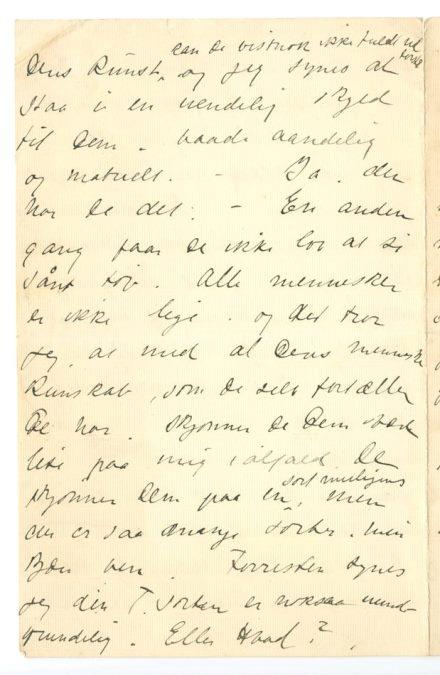 kan de vistnok ikke fuldt ud forstå
Deres Kunst, og jeg synes at
staa i en uendelig Gjæld
til Dem, baade aandelig
og matrielt. - Ja, der
har De det. - En anden
gang faar De ikke lov at si
sånt tøv. Alle mennesker
er ikke lige, og det tror
jeg, at med al Deres menneske
kunskab, som De selv fortæller
De har. Skjønner De Dem
lite paa mig ialfald. De
skjønner Dem paa en sort muligens, men
der er saa mange Sorter, min
Bør ven. Forresten synes
jeg den T. Sorten er noksaa
grundig. Eller Hvad?